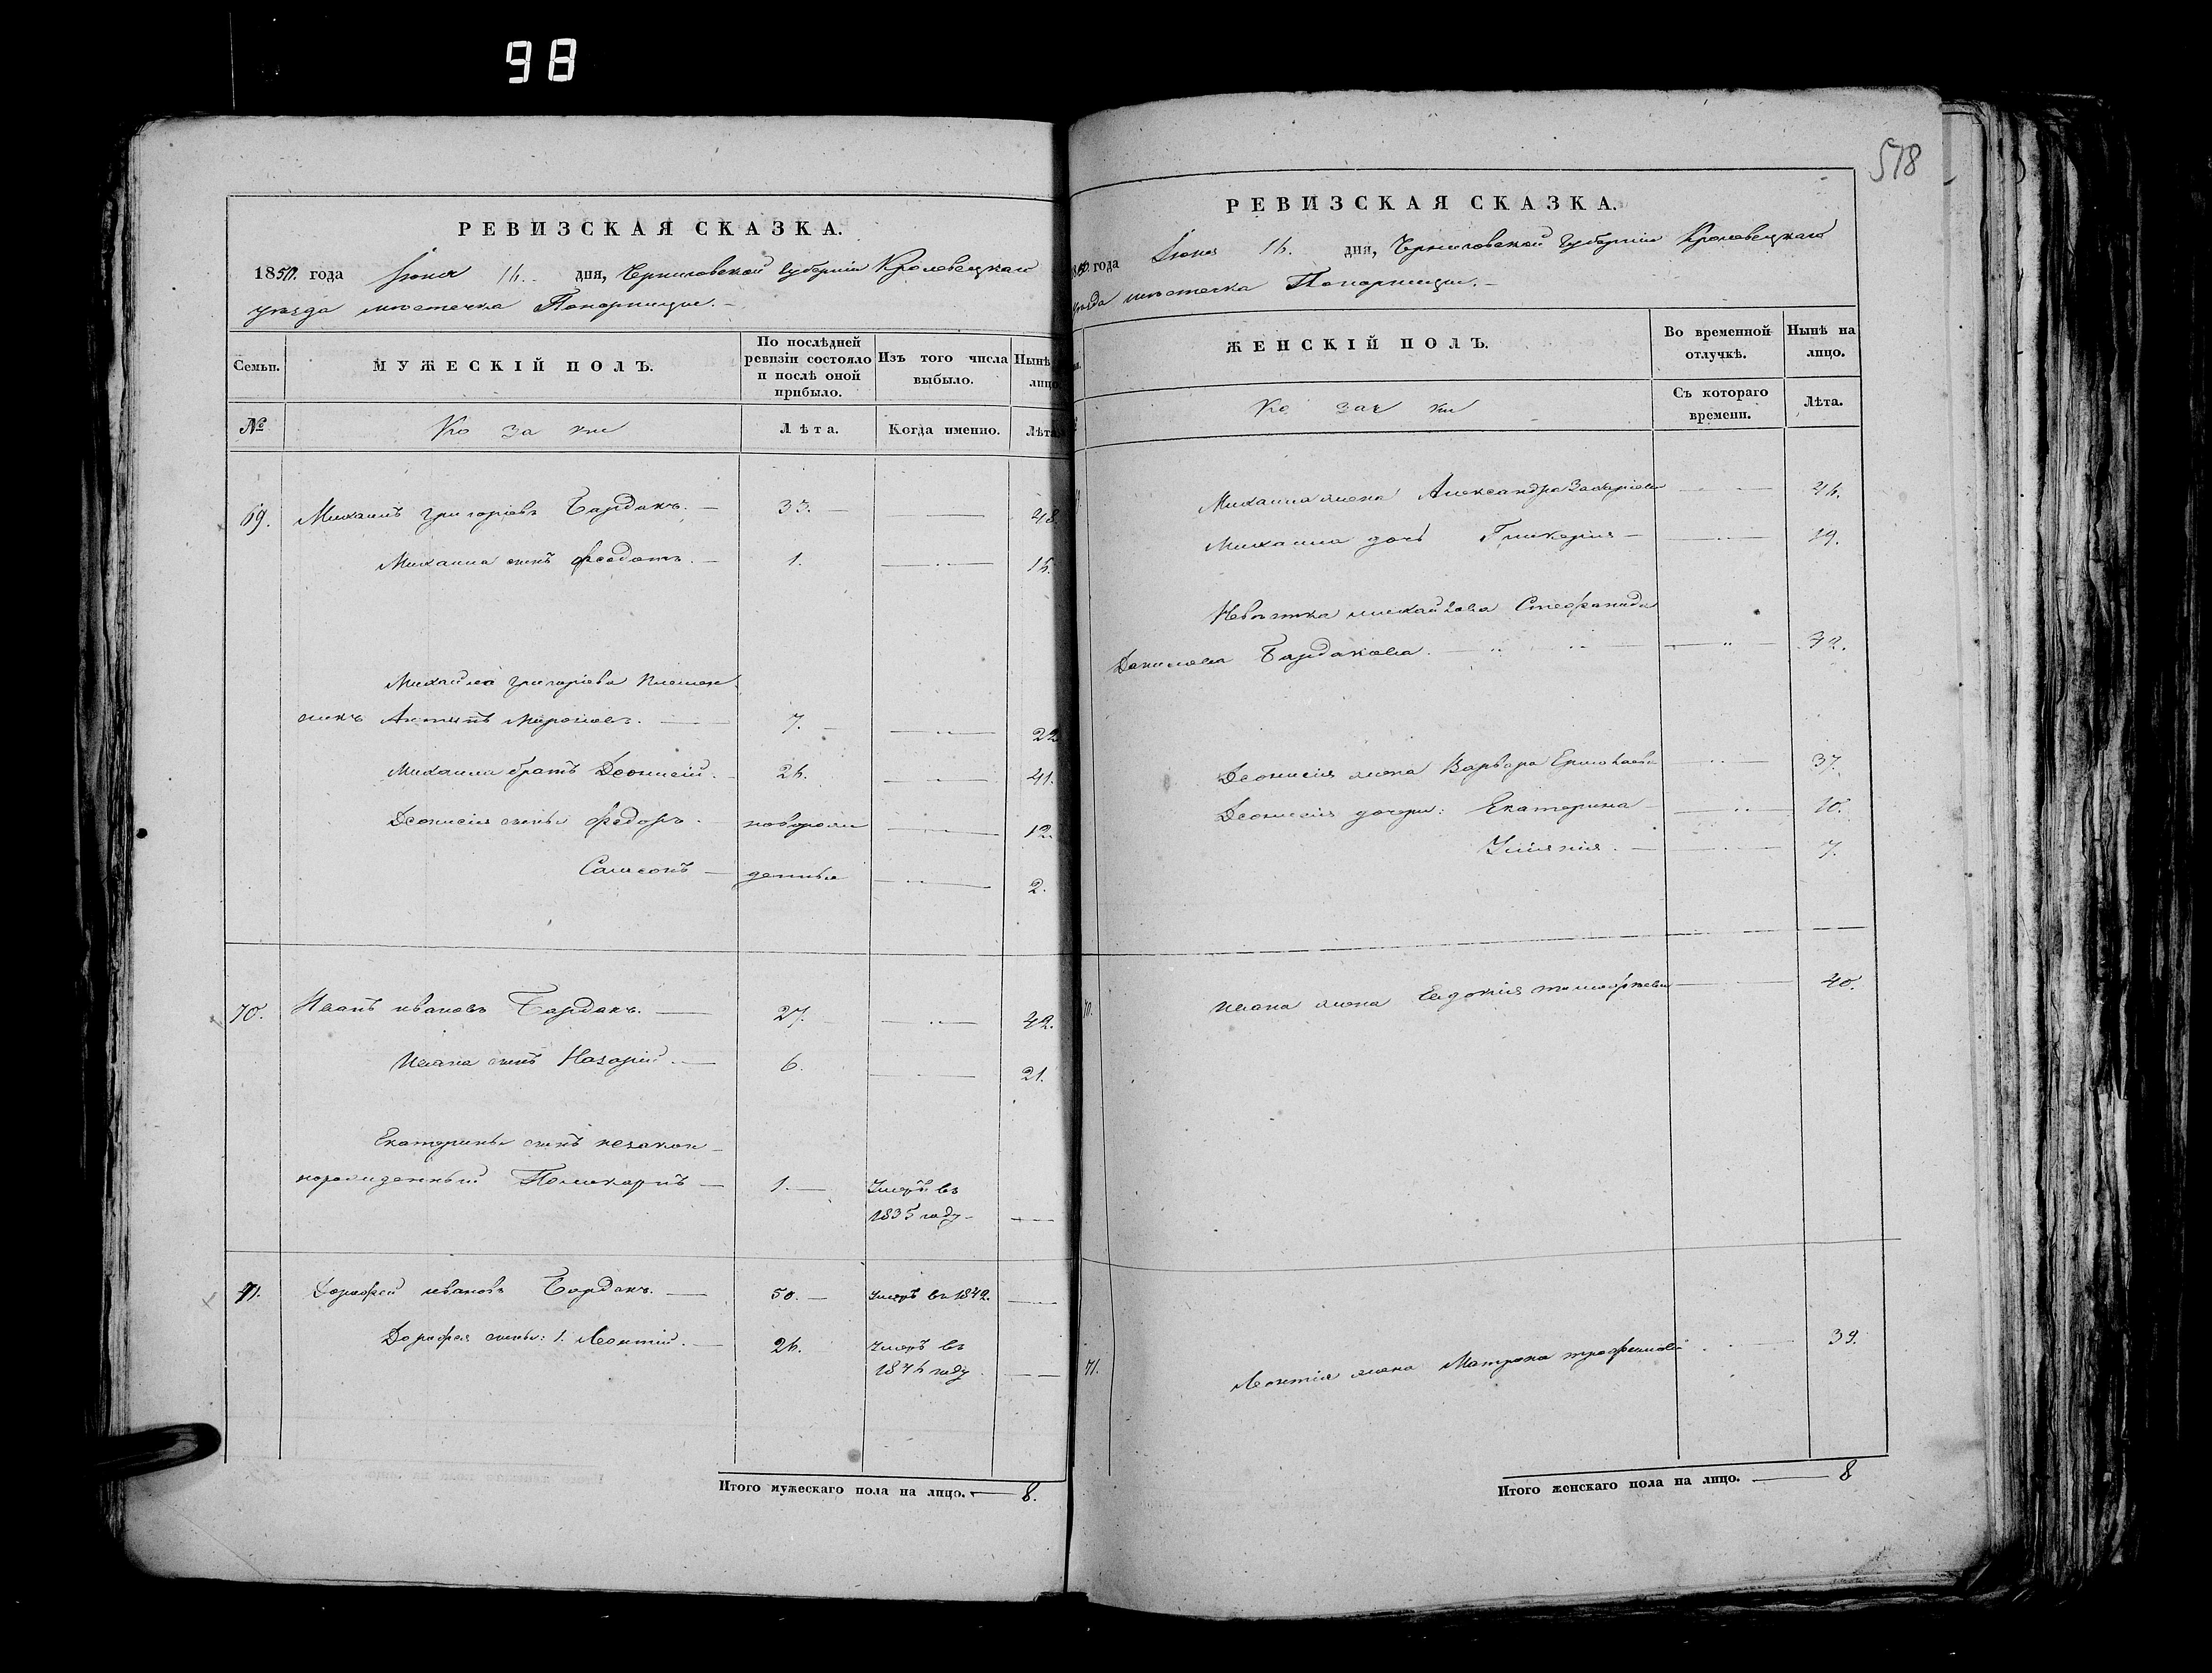 98
518
РЕВИЗСКАЯ СКАЗКА.
1850. года Іюня 16. дня, Черниговской Губерніи Кролевецкаго
уѣзда мѣстечка Понорницы.
Семьи. МУЖЕСКІЙ ПОЛЪ. По послѣдней ревизіи состояло и послѣ оной прибыло. Изъ того числа выбыло. Нынѣ лицо
№ Козаки Лѣта. Когда именно. Лѣта
69. Михаилъ григоріевъ Бардакъ. 33. 48.
Михаила сынъ Федотъ. 1. 16.
Михайла григоріева племян
никъ Антипъ Мироновъ. 7. 22
Михаила братъ Деонисій. 26. 41.
Деонисія сыны Федоръ новорож 12.
Самсонъ денные 2.
70. Иванъ ивановъ Бардакъ. 27. 42.
Ивана сынъ Назарій. 6. 21.
Екатерины сынъ незакон
норожденный Поликарпъ 1. Умеръ въ
1835 году
71. Дорофей ивановъ Бардакъ. 50. Умеръ въ 1842.
Дорофея сыны: 1. Леонтій. 26. Умеръ въ
1846 году
Итого мужескаго пола на лицо. 8.
РЕВИЗСКАЯ СКАЗКА.
года Іюня 16. дня, Черниговской Губерніи Кролевецкаго
уѣзда мѣстечка Понорницы.
ЖЕНСКІЙ ПОЛЪ. Во временной отлучкѣ. Нынѣ на лицо.
Козачки Съ котораго времени. Лѣта.
Михаила жена Александра Захаріева 46.
Михаила дочь Гликерія 19.
Невѣстка михайлова Стефанида
Данилова Бардакова. 42.
Деонисія жена Варвара Ермолаева 37.
Деонисія дочери: Екатерина 10.
Уліянія. 7.
70. Ивана жена Евдокія тимофѣева 40.
71. Леонтія жена Матрона трофимова 39.
Итого женскаго пола на лицо. 8